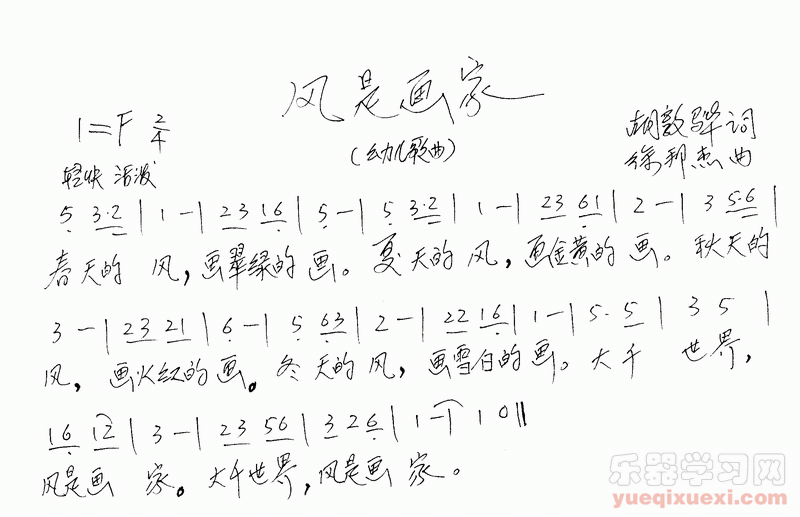 风是画家
1=F 2/4
(幼儿歌曲)
胡敦骅词
徐邦杰曲
轻快 活泼
5 3·2 | 1 - | 23 16 | 5 - | 5 3·2 | 1 - | 23 61 | 2 - | 3 5·6 |
春天的 风，画翠绿的 画。夏天的 风，画金黄的 画。秋天的
3 - | 23 21 | 6 - | 5 63 | 2 - | 22 16 | 1 - | 5· 5 | 3 5 |
风，画火红的画。冬天的风，画雪白的画。大千 世界，
16 12 | 3 - | 23 56 | 3 26 | 1 - | 1 0 ‖
风是画 家。大千世界，风是画 家。
乐器学习网
yueqixuexi.com